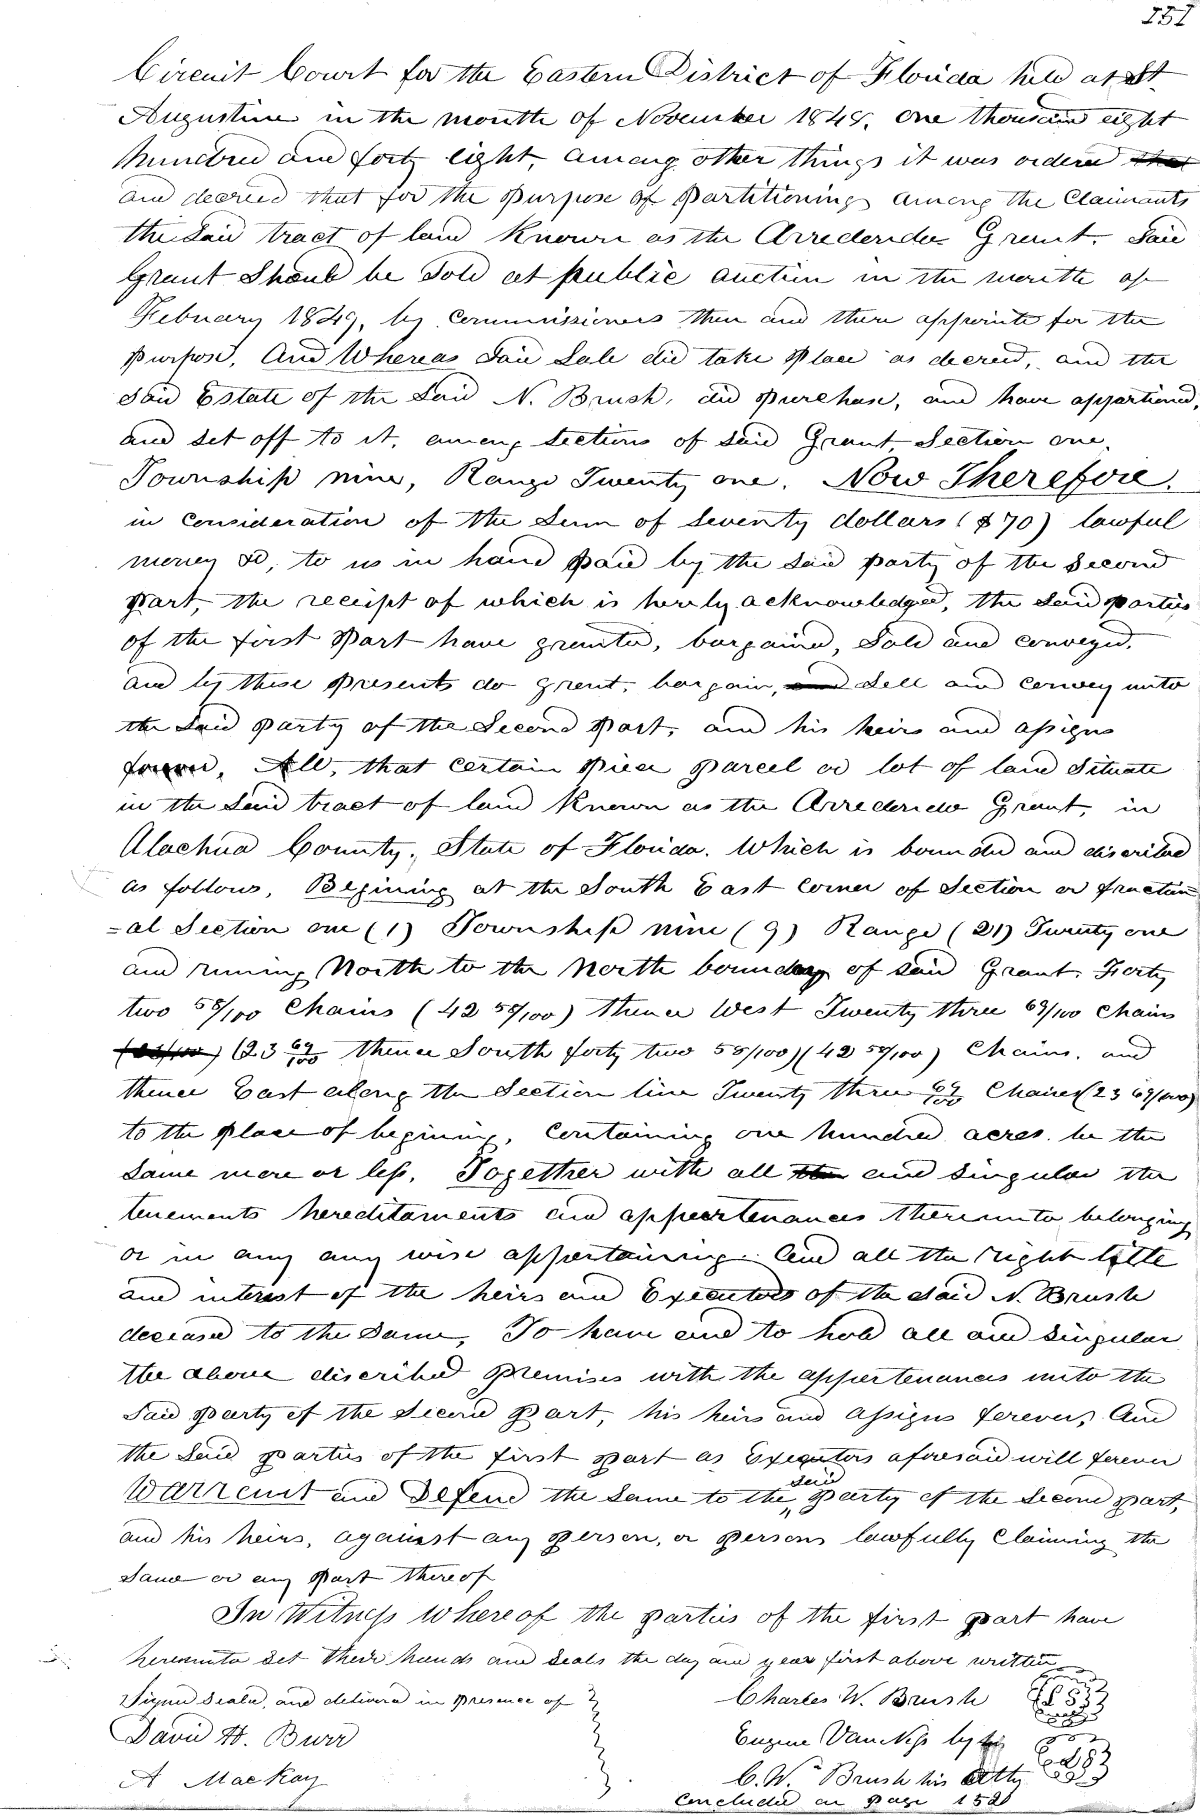 151
Circuit Court for the Eastern District of Florida held at St
Augustine in the month of November 1848, one thousand eight
hundred and forty eight, among other things it was ordered that
and decreed that for the purpose of partitioning among the Claimants
the said tract of land known as the Arredondo Grant, Said
Grant should be sold at public auction in the month of
February 1849, by commissioners then and there appointed for the
purpose, And Whereas said sale did take place as decreed, and the
said Estate of the said N. Brush, did purchase, and have apportioned,
and set off to it, among sections of said Grant, Section one,
Township nine, Range Twenty one. Now Therefore,
in consideration of the sum of seventy dollars ($70) lawful
money &c, to us in hand paid by the said party of the second
part, the receipt of which is hereby acknowledged, the said parties
of the first part have granted, bargained, sold and conveyed,
and by these presents do grant, bargain, and sell and convey unto
the said party of the second part, and his heirs and assigns
forever, All, that certain piece parcel or lot of land situate
in the said tract of land known as the Arredondo Grant, in
Alachua County, State of Florida. Which is bounded and discribed
as follows, Begining at the South East corner of Section or fraction
=al Section one (1) Township nine (9) Range (21) Twenty one
and runing North to the North boundary of said Grant, Forty
two 58/100 Chains (42 58/100) thence West Twenty three 69/100 Chains
(23 69/100 thence South forty two 58/100) (42 58/100) Chains, and
thence East along the Section line Twenty three 69/100 Chaines (23 69/100)
to the place of begining, containing one hundred acres be the
same more or less, Together with all the and singular the
tenements hereditaments and appertenances thereunto belonging
or in any any wise appertaining. And all the right title
and interest of the heirs and Executors of the said N. Brush
deceased to the same, To have and to hold all and singular
the above discribed premises with the appertenances unto the
said party of the second part, his heirs and assigns forever, And
the said parties of the first part as Executors aforesaid will forever
Warrent and Defend the same to the said party of the second part,
and his heirs, against any person, or persons lawfully claiming the
same or any part thereof
In Witness whereof the parties of the first part have
hereunto set their hands and seals the day and year first above written
Signed seald, and delivered in presence of Charles W. Brush L S
David H. Burr Eugene VanNess by
A MacKay C. Wm Brush his Atty L S
Concluded on page 152